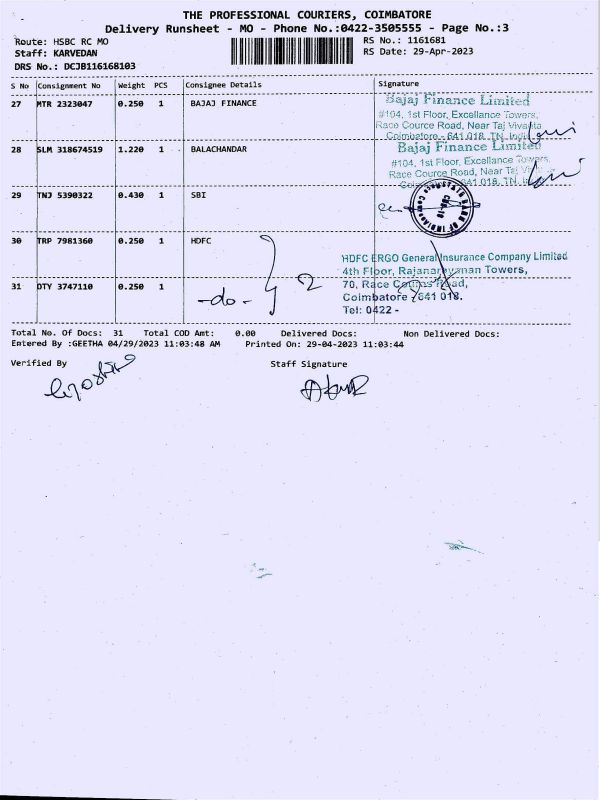 THE PROFESSIONAL COURIERS, COIMBATORE
Delivery Runsheet - MO - Phone No.:0422-3505555 - Page No.:3
Route: HSBC RC MO
RS No.: 1161681
Staff: KARVEDAN
RS Date: 29-Apr-2023
DRS No.: DCJB116168103
S No Consignment No Weight PCS Consignee Details Signature
27 MTR 2323047 0.250 1 BAJAJ FINANCE
Bajaj Finance Limited
#104, 1st Floor, Excellance Towers,
Race Cource Road, Near Taj Vivanta
Coimbatore - 641 018. TN, India
28 SLM 318674519 1.220 1 BALACHANDAR
Bajaj Finance Limited
#104, 1st Floor, Excellance Towers,
Race Cource Road, Near Taj
641 018. TN,
29 TNJ 5390322 0.430 1 SBI
STATE BANK OF INDIA
30 TRP 7981360 0.250 1 HDFC
HDFC ERGO General Insurance Company Limited
4th Floor, Rajanarayanan Towers,
70, Race Course Road,
Coimbatore - 641 018.
Tel: 0422 -
31 OTY 3747110 0.250 1
-do-
2
Total No. Of Docs: 31 Total COD Amt: 0.00 Delivered Docs: Non Delivered Docs:
Entered By :GEETHA 04/29/2023 11:03:48 AM Printed On: 29-04-2023 11:03:44
Verified By Staff Signature